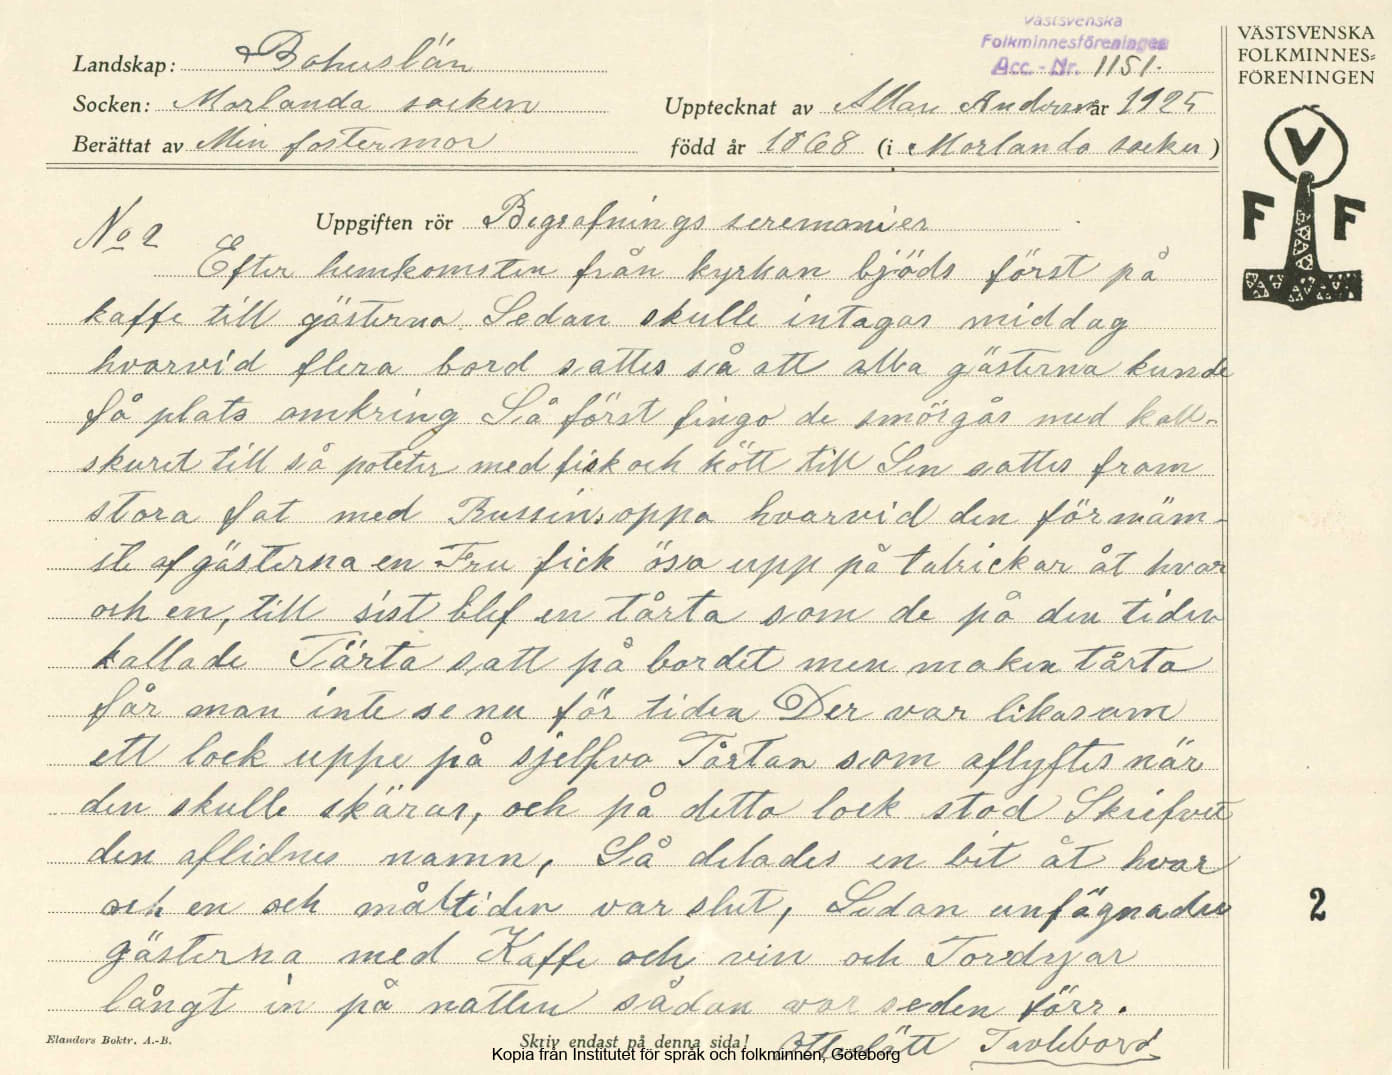 Västsvenska
Folkminnesföreningen
Acc. - Nr. 1151.
VÄSTSVENSKA
FOLKMINNES=
FÖRENINGEN
V
F F
Landskap: Bohuslän
Socken: Morlanda socken Upptecknat av Allan Anderson år 1925
Berättat av Min fostermor född år 1868 (i Morlanda socken)
No 2 Uppgiften rör Begrafnings seremonier
Efter hemkomsten från kyrkan bjöds först på
kaffe till gästerna. Sedan skulle intagas middag
hvarvid flera bord sattes så att alla gästerna kunde
få plats omkring Så först fingo de smörgås med kall-
skuret till så poteter med fisk och kött till Sen sattes fram
stora fat med Russin oppa hvarvid den förnäm-
ste af gästerna en Fru fick ösa upp på talrickar åt hvar
och en, till sist blef en tårta som de på den tiden
kallade Tärta satt på bordet men maken tårta
får man inte se nu för tiden Der var likasom
ett lock uppe på sjelfva Tårtan som aflyftes när
den skulle skäras, och på detta lock stod Skrifvet
den aflidnes namn, Så delades en bit åt hvar
och en och måltiden var slut, Sedan unfägnades
gästerna med Kaffe och vin och
långt in på natten sådan var seden förr.
Elanders Boktr. A.-B. Skriv endast på denna sida!
2
Kopia från Institutet för språk och folkminnen, Göteborg